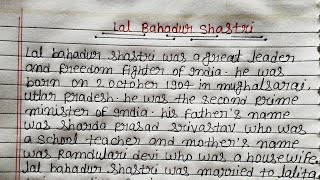 Lal Bahadur Shastri
Lal bahadur shastri was a great leader
and freedom fighter of India. he was
born on 2 october 1904 in mughalsarai,
Uttar pradesh. he was the second prime
minister of India. his father's name
was sharda prasad srivastav who was
a school teacher and mother's name
was Ramdulari devi who was a house wife.
Lal bahadur shastri was married to Lalita